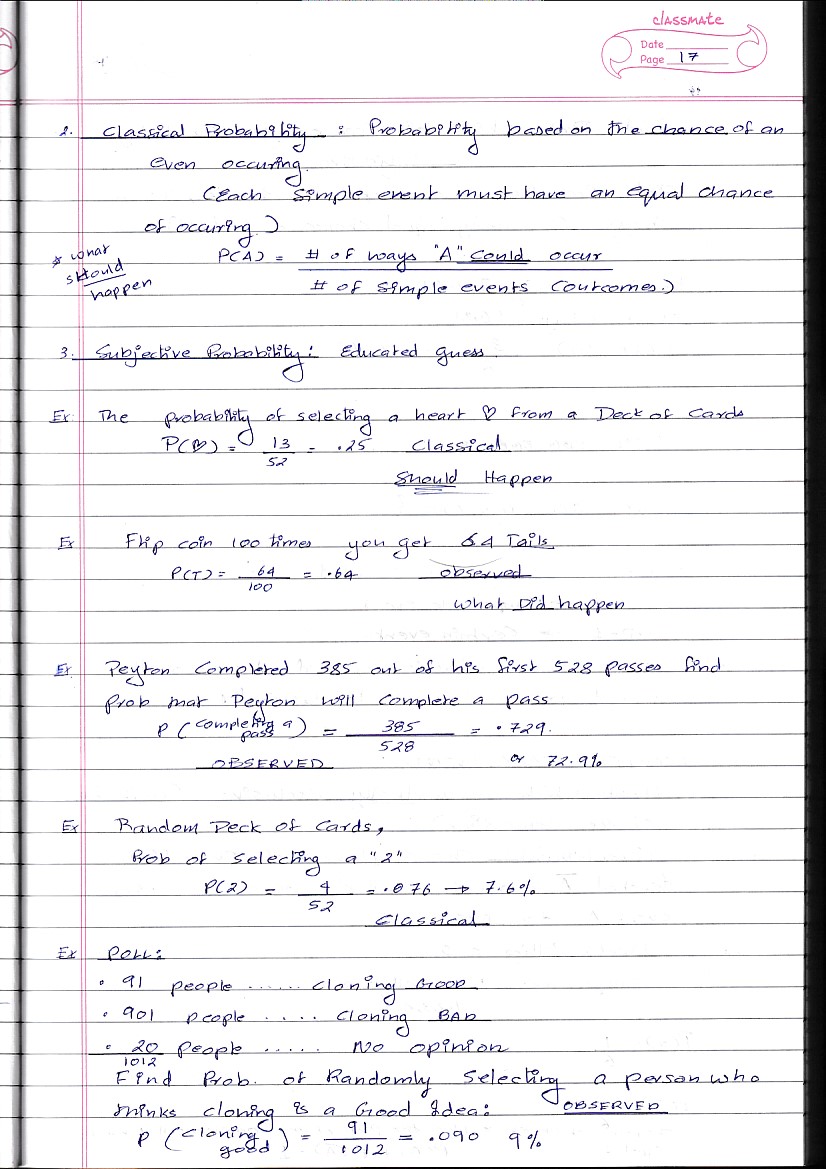 classmate
Date
Page 17
2. Classical Probability : Probability based on the chance of an
even occuring.
(Each simple event must have an equal chance
of occuring.)
* what
should
happen
P(A) = # of ways "A" could occur
# of simple events (outcomes.)
3. Subjective Probability: Educated guess.
Ex: The probability of selecting a heart ♡ from a Deck of Cards
P(♡) = 13/52 = .25 Classical
Should Happen
Ex Flip coin 100 times you get 64 Tails
P(T) = 64/100 = .64 observed
what Did happen
Ex Peyton Completed 385 out of his first 528 passes find
Prob that Peyton will complete a pass
P (completing a pass) = 385/528 = .729.
OBSERVED or 72.9%
Ex Random Deck of Cards,
Prob of selecting a "2"
P(2) = 4/52 = .076 → 7.6%
Classical
Ex POLL:
• 91 people ...... cloning GOOD
• 901 people .... cloning BAD
• 20 people ..... No opinion
1012
Find Prob. of Randomly Selecting a person who
thinks cloning is a Good Idea: OBSERVED
P (cloning good) = 91/1012 = .090 9%